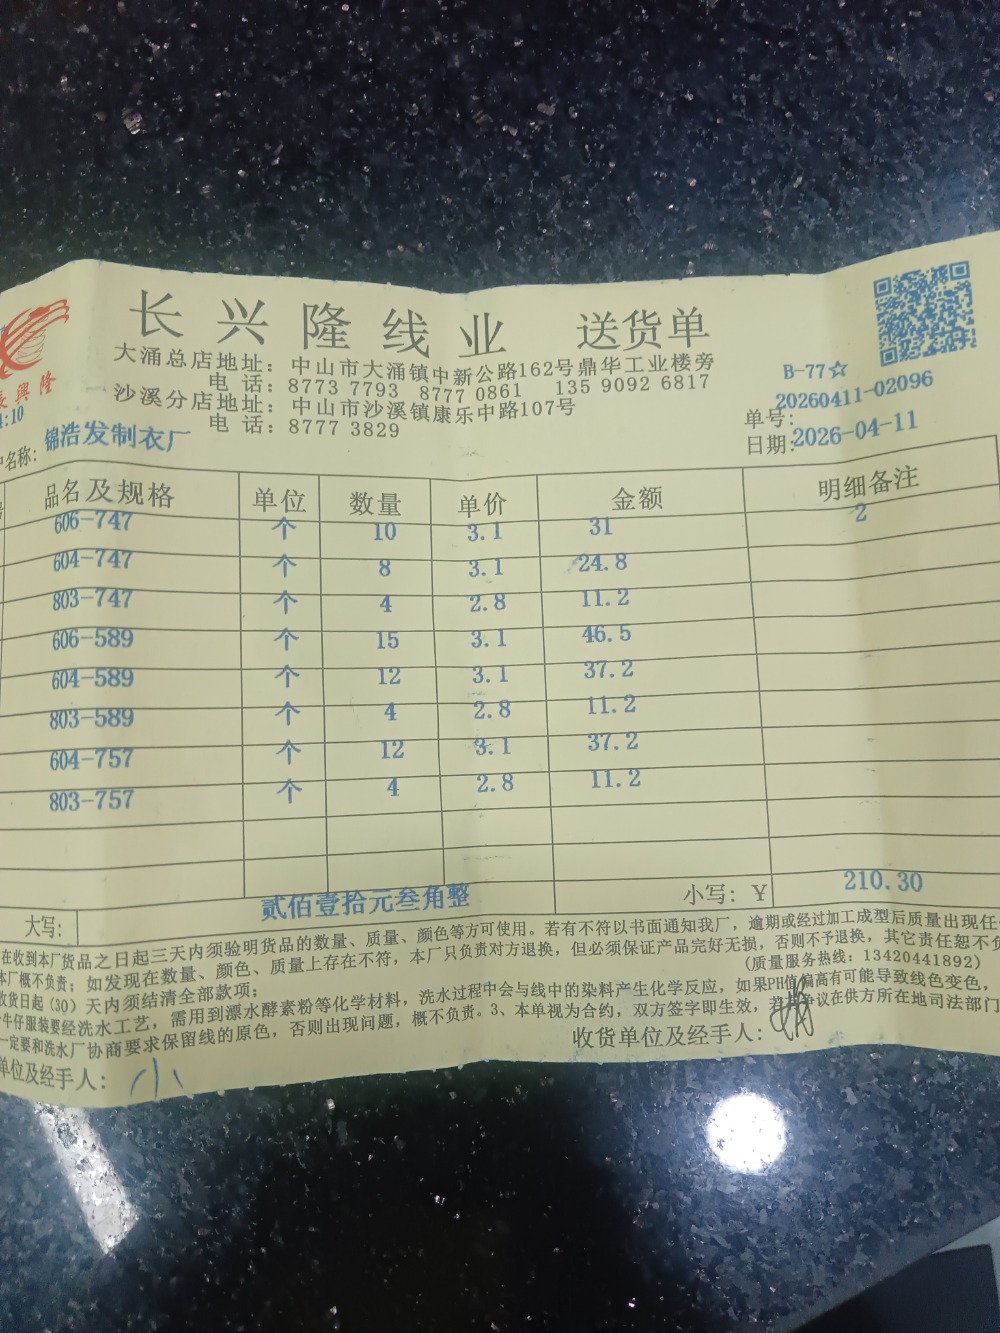 长兴隆线业 送货单
大涌总店地址：中山市大涌镇中新公路162号鼎华工业楼旁
电 话：8773 7793 8777 0861 135 9092 6817
沙溪分店地址：中山市沙溪镇康乐中路107号
电 话：8777 3829
興隆
4:10
B-77☆
单号：20260411-02096
名称：锦浩发制衣厂
日期：2026-04-11
品名及规格 单位 数量 单价 金额 明细备注
606-747 个 10 3.1 31 2
604-747 个 8 3.1 24.8
803-747 个 4 2.8 11.2
606-589 个 15 3.1 46.5
604-589 个 12 3.1 37.2
803-589 个 4 2.8 11.2
604-757 个 12 3.1 37.2
803-757 个 4 2.8 11.2
大写：贰佰壹拾元叁角整 小写：￥ 210.30
在收到本厂货品之日起三天内须验明货品的数量、质量、颜色等方可使用。若有不符以书面通知我厂，逾期或经过加工成型后质量出现任
本厂概不负责；如发现在数量、颜色、质量上存在不符，本厂只负责对方退换，但必须保证产品完好无损，否则不予退换，其它责任恕不负
（质量服务热线：13420441892）
收货日起(30)天内须结清全部款项；
牛仔服装要经洗水工艺，需用到漂水酵素粉等化学材料，洗水过程中会与线中的染料产生化学反应，如果PH值偏高有可能导致线色变色，
一定要和洗水厂协商要求保留线的原色，否则出现问题，概不负责。3、本单视为合约，双方签字即生效，若有争议在供方所在地司法部门
收货单位及经手人：
单位及经手人：小